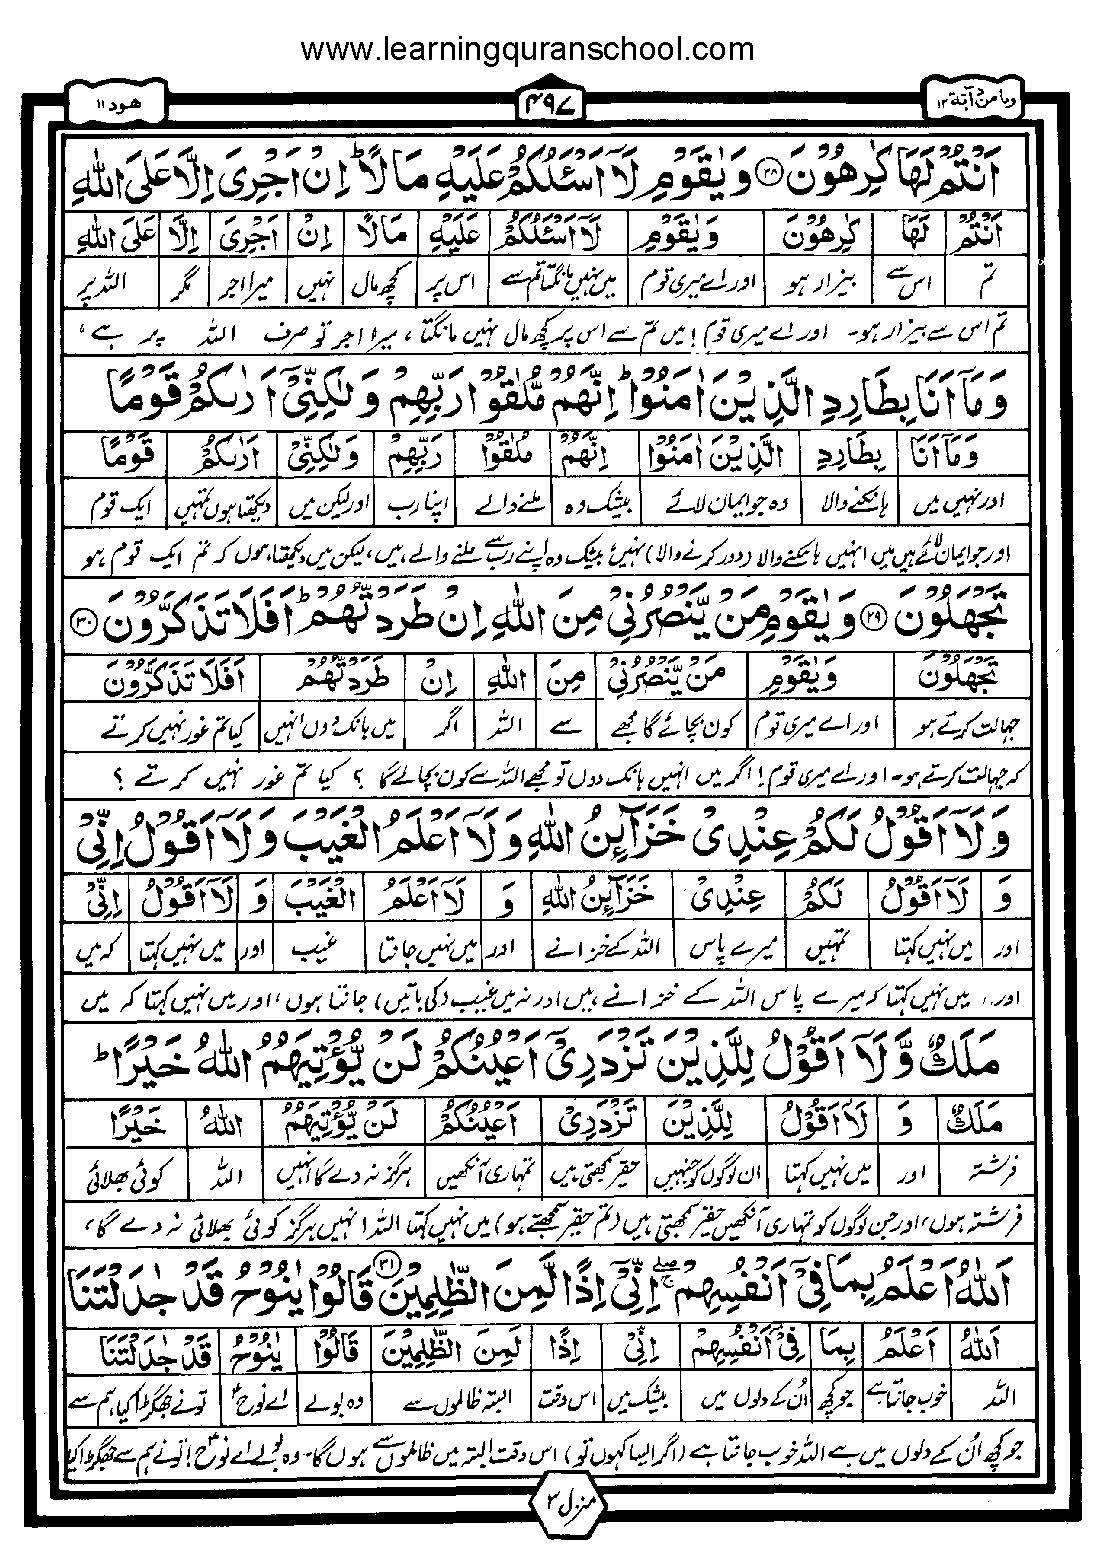 www.learningquranschool.com
وما من دآبة ١٢
۴۹۷
هود ١١
اَنْتُمْ لَهَا كٰرِهُوْنَ ۲۸ وَيٰقَوْمِ لَاۤ اَسْـَٔلُكُمْ عَلَيْهِ مَالًا ؕ اِنْ اَجْرِىَ اِلَّا عَلَى اللّٰهِ
اَنْتُمْ لَهَا كٰرِهُوْنَ وَيٰقَوْمِ لَاۤ اَسْـَٔلُكُمْ عَلَيْهِ مَالًا اِنْ اَجْرِىَ اِلَّا عَلَى اللّٰهِ
تم اس سے بیزار ہو اور اے میری قوم میں نہیں مانگتا تم سے اس پر کچھ مال نہیں میرا اجر مگر اللہ پر
تم اس سے بیزار ہو۔ اور اے میری قوم! میں تم سے اس پر کچھ مال نہیں مانگتا، میرا اجر تو صرف اللہ پر ہے،
وَمَاۤ اَنَا بِطَارِدِ الَّذِيْنَ اٰمَنُوْا ؕ اِنَّهُمْ مُّلٰقُوْا رَبِّهِمْ وَلٰكِنِّىْۤ اَرٰىكُمْ قَوْمًا
وَمَاۤ اَنَا بِطَارِدِ الَّذِيْنَ اٰمَنُوْا اِنَّهُمْ مُلٰقُوْا رَبِّهِمْ وَلٰكِنِّىْۤ اَرٰىكُمْ قَوْمًا
اور نہیں میں ہانکنے والا وہ جو ایمان لائے بیشک وہ ملنے والے اپنا رب اور لیکن میں دیکھتا ہوں تمہیں ایک قوم
اور جو ایمان لائے ہیں میں انہیں ہانکنے والا (دور کرنے والا) نہیں، بیشک وہ اپنے رب سے ملنے والے ہیں، لیکن میں دیکھتا ہوں کہ تم ایک قوم ہو
تَجْهَلُوْنَ ۲۹ وَيٰقَوْمِ مَنْ يَّنْصُرُنِىْ مِنَ اللّٰهِ اِنْ طَرَدْتُّهُمْ ؕ اَفَلَا تَذَكَّرُوْنَ ۳۰
تَجْهَلُوْنَ وَيٰقَوْمِ مَنْ يَّنْصُرُنِىْ مِنَ اللّٰهِ اِنْ طَرَدْتُّهُمْ اَفَلَا تَذَكَّرُوْنَ
جہالت کرتے ہو اور اے میری قوم کون بچائے گا مجھے سے اللہ اگر میں ہانک دوں انہیں کیا تم غور نہیں کرتے
کہ جہالت کرتے ہو۔ اور اے میری قوم! اگر میں انہیں ہانک دوں تو مجھے اللہ سے کون بچالے گا ؟ کیا تم غور نہیں کرتے ؟
وَلَاۤ اَقُوْلُ لَكُمْ عِنْدِىْ خَزَآئِنُ اللّٰهِ وَلَاۤ اَعْلَمُ الْغَيْبَ وَلَاۤ اَقُوْلُ اِنِّىْ
وَ لَاۤ اَقُوْلُ لَكُمْ عِنْدِىْ خَزَآئِنُ اللّٰهِ وَ لَاۤ اَعْلَمُ الْغَيْبَ وَ لَاۤ اَقُوْلُ اِنِّىْ
اور میں نہیں کہتا تمہیں میرے پاس اللہ کے خزانے اور میں نہیں جانتا غیب اور میں نہیں کہتا کہ میں
اور میں نہیں کہتا کہ میرے پاس اللہ کے خزانے ہیں اور نہ میں غیب (کی باتیں) جانتا ہوں، اور میں نہیں کہتا کہ میں
مَلَكٌ وَّلَاۤ اَقُوْلُ لِلَّذِيْنَ تَزْدَرِىْۤ اَعْيُنُكُمْ لَنْ يُّؤْتِيَهُمُ اللّٰهُ خَيْرًا ؕ
مَلَكٌ وَ لَاۤ اَقُوْلُ لِلَّذِيْنَ تَزْدَرِىْۤ اَعْيُنُكُمْ لَنْ يُّؤْتِيَهُمُ اللّٰهُ خَيْرًا
فرشتہ اور میں نہیں کہتا ان لوگوں کو جنہیں حقیر سمجھتی ہیں تمہاری آنکھیں ہرگز نہ دے گا انہیں اللہ کوئی بھلائی
فرشتہ ہوں، اور جن لوگوں کو تمہاری آنکھیں حقیر سمجھتی ہیں (تم حقیر سمجھتے ہو) میں نہیں کہتا اللہ انہیں ہرگز کوئی بھلائی نہ دے گا،
اَللّٰهُ اَعْلَمُ بِمَا فِىْۤ اَنْفُسِهِمْ ۖۚ اِنِّىْۤ اِذًا لَّمِنَ الظّٰلِمِيْنَ ۳۱ قَالُوْا يٰنُوْحُ قَدْ جٰدَلْتَنَا
اَللّٰهُ اَعْلَمُ بِمَا فِىْۤ اَنْفُسِهِمْ اِنِّىْ اِذًا لَمِنَ الظّٰلِمِيْنَ قَالُوْا يٰنُوْحُ قَدْ جٰدَلْتَنَا
اللہ خوب جانتا ہے جو کچھ اُن کے دلوں میں بیشک میں اس وقت البتہ ظالموں سے وہ بولے اے نوحؑ تونے جھگڑا کیا ہم سے
جو کچھ اُن کے دلوں میں ہے اللہ خوب جانتا ہے (اگر ایسا کہوں تو) اس وقت البتہ میں ظالموں سے ہوں گا۔ وہ بولے اے نوحؑ! تونے ہم سے جھگڑا کیا
منزل ۳